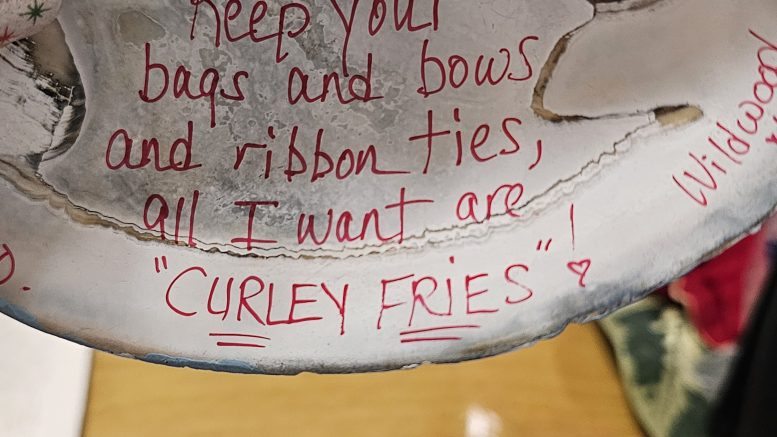 Keep your
bags and bows
and ribbon ties,
all I want are
"CURLEY FRIES"!
Wildwood